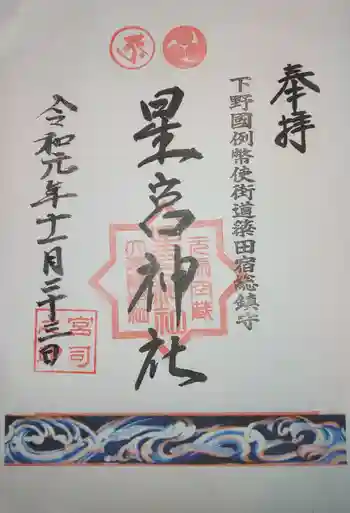 奉拝
下野國例幣使街道築田宿総鎮守
星宮神社
令和元年十一月二十三日
宮司